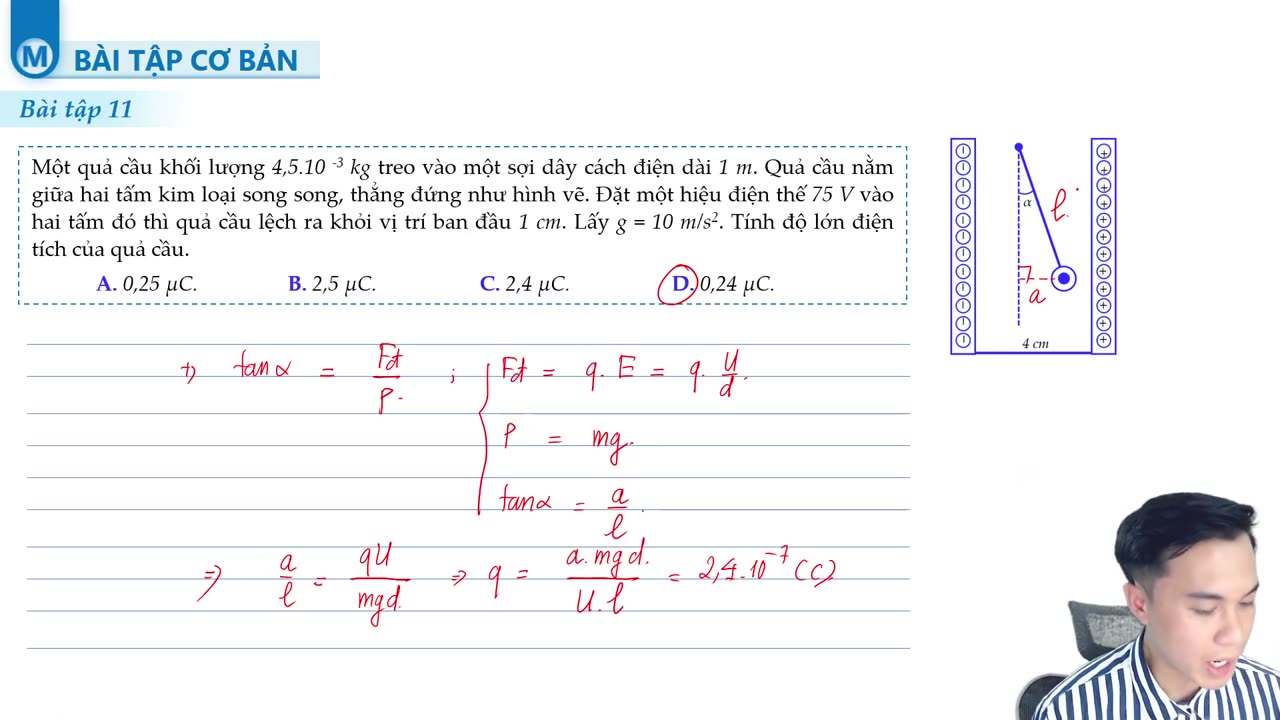 M BÀI TẬP CƠ BẢN
Bài tập 11
Một quả cầu khối lượng 4,5.10 -3 kg treo vào một sợi dây cách điện dài 1 m. Quả cầu nằm
giữa hai tấm kim loại song song, thẳng đứng như hình vẽ. Đặt một hiệu điện thế 75 V vào
hai tấm đó thì quả cầu lệch ra khỏi vị trí ban đầu 1 cm. Lấy g = 10 m/s². Tính độ lớn điện
tích của quả cầu.
A. 0,25 μC. B. 2,5 μC. C. 2,4 μC. D. 0,24 μC.
α
l
a
4 cm
+) tanα = Fđt / P ; Fđt = q. E = q. U/d.
P = mg.
tanα = a/l.
=> a/l = qU/mgd. => q = a.mgd./U.l = 2,4.10⁻⁷ (C)